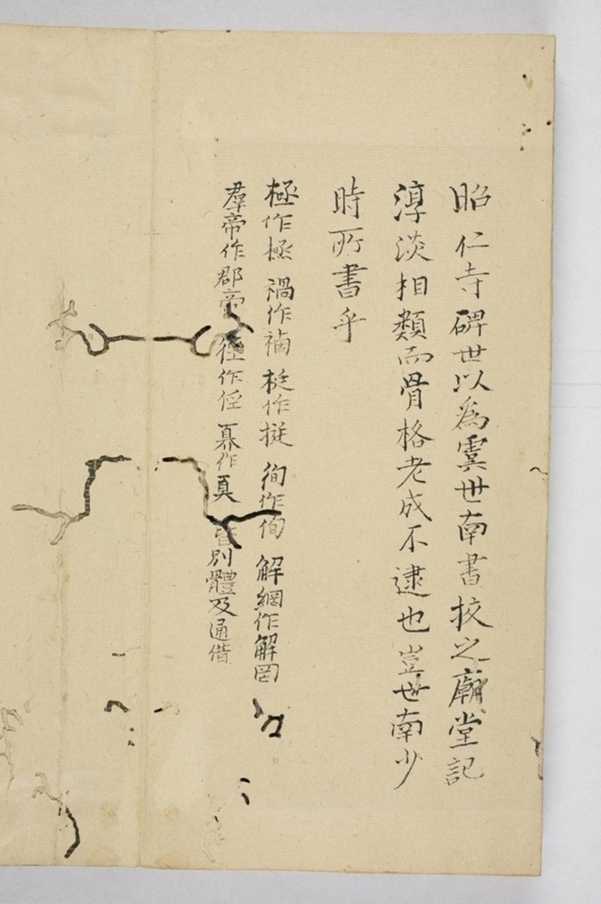 昭仁寺碑世以為虞世南書挍之廟堂記
淳淡相類而骨格老成不逮也豈世南少
時所書乎
極作㥛 禍作 梃作挻 徇作侚 解網作解罔
羣帝作郡帝 徑作俓 作 皆別體及通借